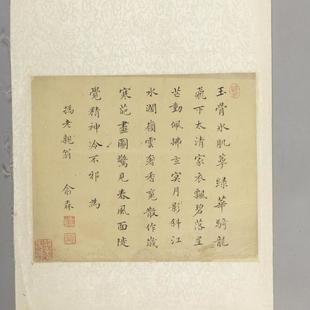 玉骨氷肌萼綠華騎龍
飛下太清家衣飄碧落星
芒動佩拂玄冥月影斜江
水濶嶺雲賒香魂散作歲
寒葩畫圖驚見春風面陡
覺精神冷不邪 為
老親翁 俞森